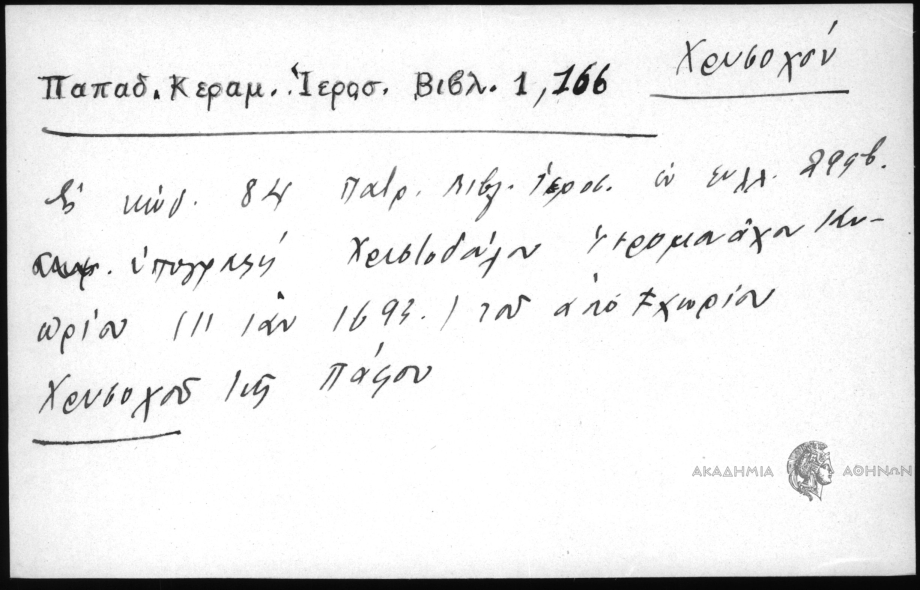 Χρυσοχού
Παπαδ. Κεραμ. Ἱεροσ. Βιβλ. 1, 166
κώδ. 84 Πατρ. Βιβλ. Ἱεροσ. ἐν φυλλ. 299β.
ὑπογραφή Χριστοδούλου ἱερομονάχου Κυ-
πρίου (11 Ἰαν 1693.) τοῦ ἀπό χωρίου
Χρυσοχοῦ τῆς Πάφου
ΑΚΑΔΗΜΙΑ ΑΘΗΝΩΝ